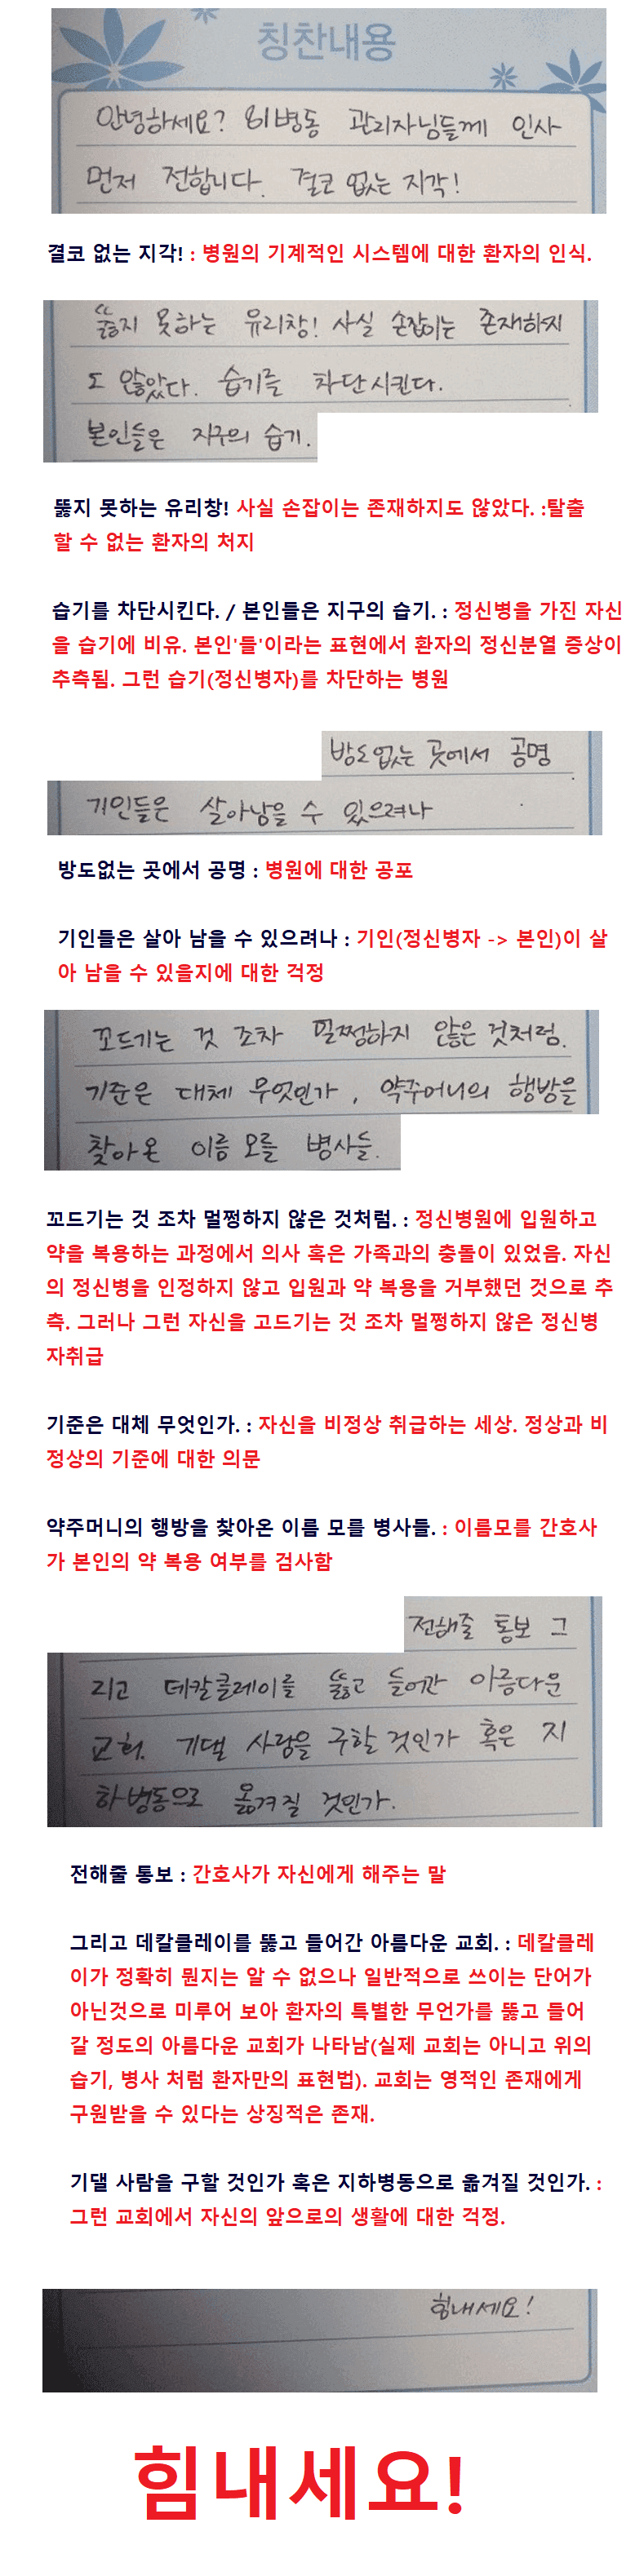 칭찬내용
안녕하세요? 81병동 관리자님들께 인사
먼저 전합니다. 결코 없는 지각!
결코 없는 지각! : 병원의 기계적인 시스템에 대한 환자의 인식.
뚫지 못하는 유리창! 사실 손잡이는 존재하지
도 않았다. 습기를 차단시킨다.
본인들은 지구의 습기.
뚫지 못하는 유리창! 사실 손잡이는 존재하지도 않았다. :탈출
할 수 없는 환자의 처지
습기를 차단시킨다. / 본인들은 지구의 습기. : 정신병을 가진 자신
을 습기에 비유. 본인'들'이라는 표현에서 환자의 정신분열 증상이
추측됨. 그런 습기(정신병자)를 차단하는 병원
방도없는 곳에서 공명
기인들은 살아남을 수 있으려나
방도없는 곳에서 공명 : 병원에 대한 공포
기인들은 살아 남을 수 있으려나 : 기인(정신병자 -> 본인)이 살
아 남을 수 있을지에 대한 걱정
꼬드기는 것 조차 멀쩡하지 않은 것처럼.
기준은 대체 무엇인가, 약주머니의 행방을
찾아온 이름 모를 병사들.
꼬드기는 것 조차 멀쩡하지 않은 것처럼. : 정신병원에 입원하고
약을 복용하는 과정에서 의사 혹은 가족과의 충돌이 있었음. 자신
의 정신병을 인정하지 않고 입원과 약 복용을 거부했던 것으로 추
측. 그러나 그런 자신을 고드기는 것 조차 멀쩡하지 않은 정신병
자취급
기준은 대체 무엇인가. : 자신을 비정상 취급하는 세상. 정상과 비
정상의 기준에 대한 의문
약주머니의 행방을 찾아온 이름 모를 병사들. : 이름모를 간호사
가 본인의 약 복용 여부를 검사함
전해줄 통보 그
리고 데칼클레이를 뚫고 들어간 아름다운
교회. 기댈 사람을 구할 것인가 혹은 지
하병동으로 옮겨질 것인가.
전해줄 통보 : 간호사가 자신에게 해주는 말
그리고 데칼클레이를 뚫고 들어간 아름다운 교회. : 데칼클레
이가 정확히 뭔지는 알 수 없으나 일반적으로 쓰이는 단어가
아닌것으로 미루어 보아 환자의 특별한 무언가를 뚫고 들어
갈 정도의 아름다운 교회가 나타남(실제 교회는 아니고 위의
습기, 병사 처럼 환자만의 표현법). 교회는 영적인 존재에게
구원받을 수 있다는 상징적은 존재.
기댈 사람을 구할 것인가 혹은 지하병동으로 옮겨질 것인가. :
그런 교회에서 자신의 앞으로의 생활에 대한 걱정.
힘내세요!
힘내세요!